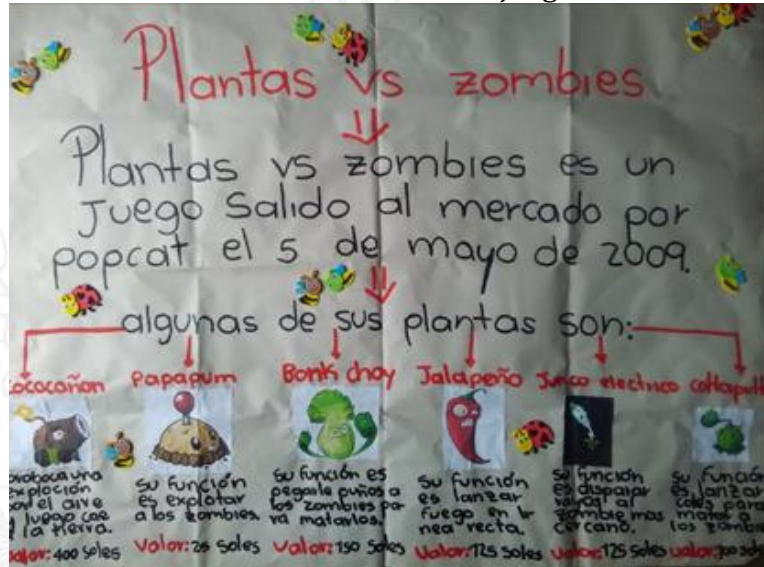 Plantas vs zombies
Plantas vs zombies es un
Juego Salido al mercado por
popcat el 5 de mayo de 2009.
algunas de sus plantas son:
cococañon
proboca una
exploción
por el aire
y luego cae
a la tierra.
valor: 400 Soles
Papapum
su función
es explotar
a los zombies.
Valor: 25 Soles
Bonk choy
su función es
pegarle puños a
los zombies pa
ra matarlos.
Valor: 150 Soles
Jalapeño
su función
es lanzar
fuego en li
nea recta.
Valor: 125 Soles
Junco electrico
su función
es disparar
al
zombie mas
cercano.
Valor: 125 Soles
coltapult
su función
es lanzar
coles para
matar a
los zombies
valor: 100 Soles